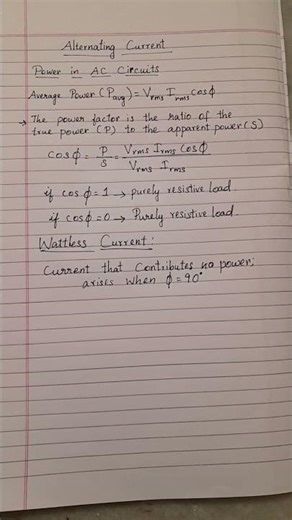 Alternating Current
Power in AC Circuits
Average Power (Pavg) = Vrms Irms cosϕ
→ The power factor is the ratio of the
true power (P) to the apparent power (S)
cosϕ = P/S = Vrms Irms cosϕ / Vrms Irms
if cosϕ = 1 → purely resistive load.
if cosϕ = 0 → Purely resistive load.
Wattless Current:
Current that Contributes no power;
arises when ϕ = 90°